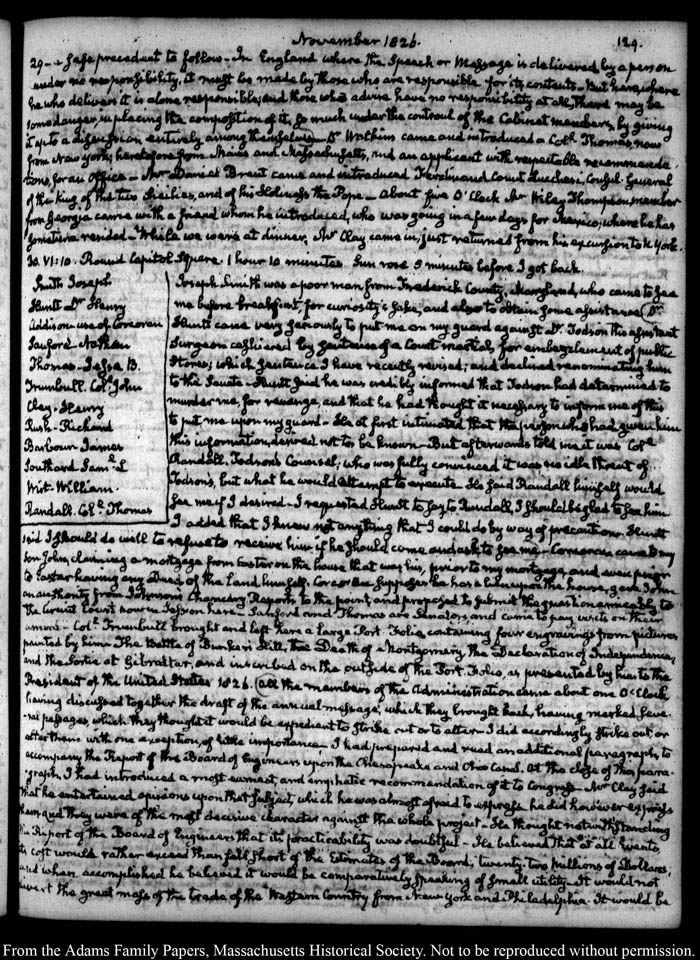 November 1826.
129.
29- a safe precedent to follow- In England where the Speech or Message is delivered by a person
under no responsibility, it must be made by those who are responsible for its contents- But here, where
he who delivers it is alone responsible, and those who advise have no responsibility at all, There may be
some danger, in placing the composition of it, so much under the controul of the Cabinet members, by giving
it up to a discussion entirely among themselves- Dr Watkins came and introduced a Coll. Thomas, now
from New York, heretofore from Maine and Massachusetts, and an applicant with respectable recommenda-
tions, for an Office- Mr Daniel Brent came and introduced Ferdinand Count Lucchesi, Consul General
of the King of the two Sicilies, and of his Holiness the Pope- About five O'Clock Mr Wiley Thompson, member
from Georgia came with a friend whom he introduced, who was going in a few days for Mexico; where he has
sometime resided- While we were at dinner, Mr Clay came in, just returned from his excursion to N. York.
30. VI:10. Round Capitol Square 1 hour 10 minutes Sun rose 9 minutes before I got back.
Smith Joseph
Huntt Dr Henry
Addison use of Corcoran
Sanford Nathan
Thomas- Jesse B.
Trumbull Coll. John
Clay- Henry
Rush- Richard
Barbour James
Southard Saml. L
Wirt- William.
Randall. Coll. Thomas
Joseph Smith was a poor man from Frederick County, Maryland, who came to see
me before breakfast for curiosity's sake, and also to obtain some assistance. Dr
Huntt came very seriously to put me on my guard against Dr Todson this assistant
Surgeon cashiered by sentence of a Court martial, for embezzlement of public
Stores; which sentence I have recently revised; and declined renominating him
to the Senate- Huntt said he was credibly informed that Todson had determined to
murder me, for revenge, and that he had thought it necessary to inform me of this
to put me upon my guard- He at first intimated that the person who had given him
this information, desired not to be known- But afterwards told me it was Coll.
Randall. Todson's Counsel; who was fully convinced it was no idle threat of
Todson's, but what he would attempt to execute. He said Randall himself would
see me if I desired- I requested Huntt to say to Randall, I should be glad to see him
I added that I knew not anything that I could do by way of precaution- Huntt
said I should do well to refuse to receive him if he should come and ask to see me- Corcoran came to my
Son John, claiming a mortgage from Easter on the house that was his, prior to my mortgage, and even prior
to Easter having any Deed of the Land himself. Corcoran supposes he has a lien upon the house, gave John
an authority from Johnson's Chancery Reports to the point, and proposed to submit the question amicably to
the Circuit Court now in Session here- Sanford and Thomas are Senators, and came to pay visits on their
arrival- Coll. Trumbull brought and left here a large Port Folio, containing four engravings from pictures
painted by him- The Battle of Bunker's Hill, The Death of Montgomery, the Declaration of Independence,
and the Sortie at Gibraltar, and inscribed on the outside of the Port Folio, as presented by him to the
President of the United States 1826. All the members of the Administration came about one O'Clock
having discussed together the draft of the annual message, which they brought back, having marked seve-
ral passages, which they thought it would be expedient to strike out or to alter- I did accordingly strike out, or
alter them with one exception, of little importance- I had prepared and read an additional paragraph, to
accompany the Report of the Board of Engineers upon the Chesapeake and Ohio Canal. At the close of this para-
graph, I had introduced a most earnest, and emphatic recommendation of it to Congress- Mr Clay said
that he entertained opinions upon that subject, which he was almost afraid to express- he did however express
them, and they were of the most decisive character against the whole project- He thought notwithstanding
the Report of the Board of Engineers that its practicability was doubtful- He believed that at all Events
its cost would rather exceed than fall short of the Estimates of the Board, twenty-two Millions of Dollars;
and when accomplished he believed it would be comparatively speaking of small utility- It would not
divert the great mass of the trade of the Western Country from New York and Philadelphia. It would be
From the Adams Family Papers, Massachusetts Historical Society. Not to be reproduced without permission.